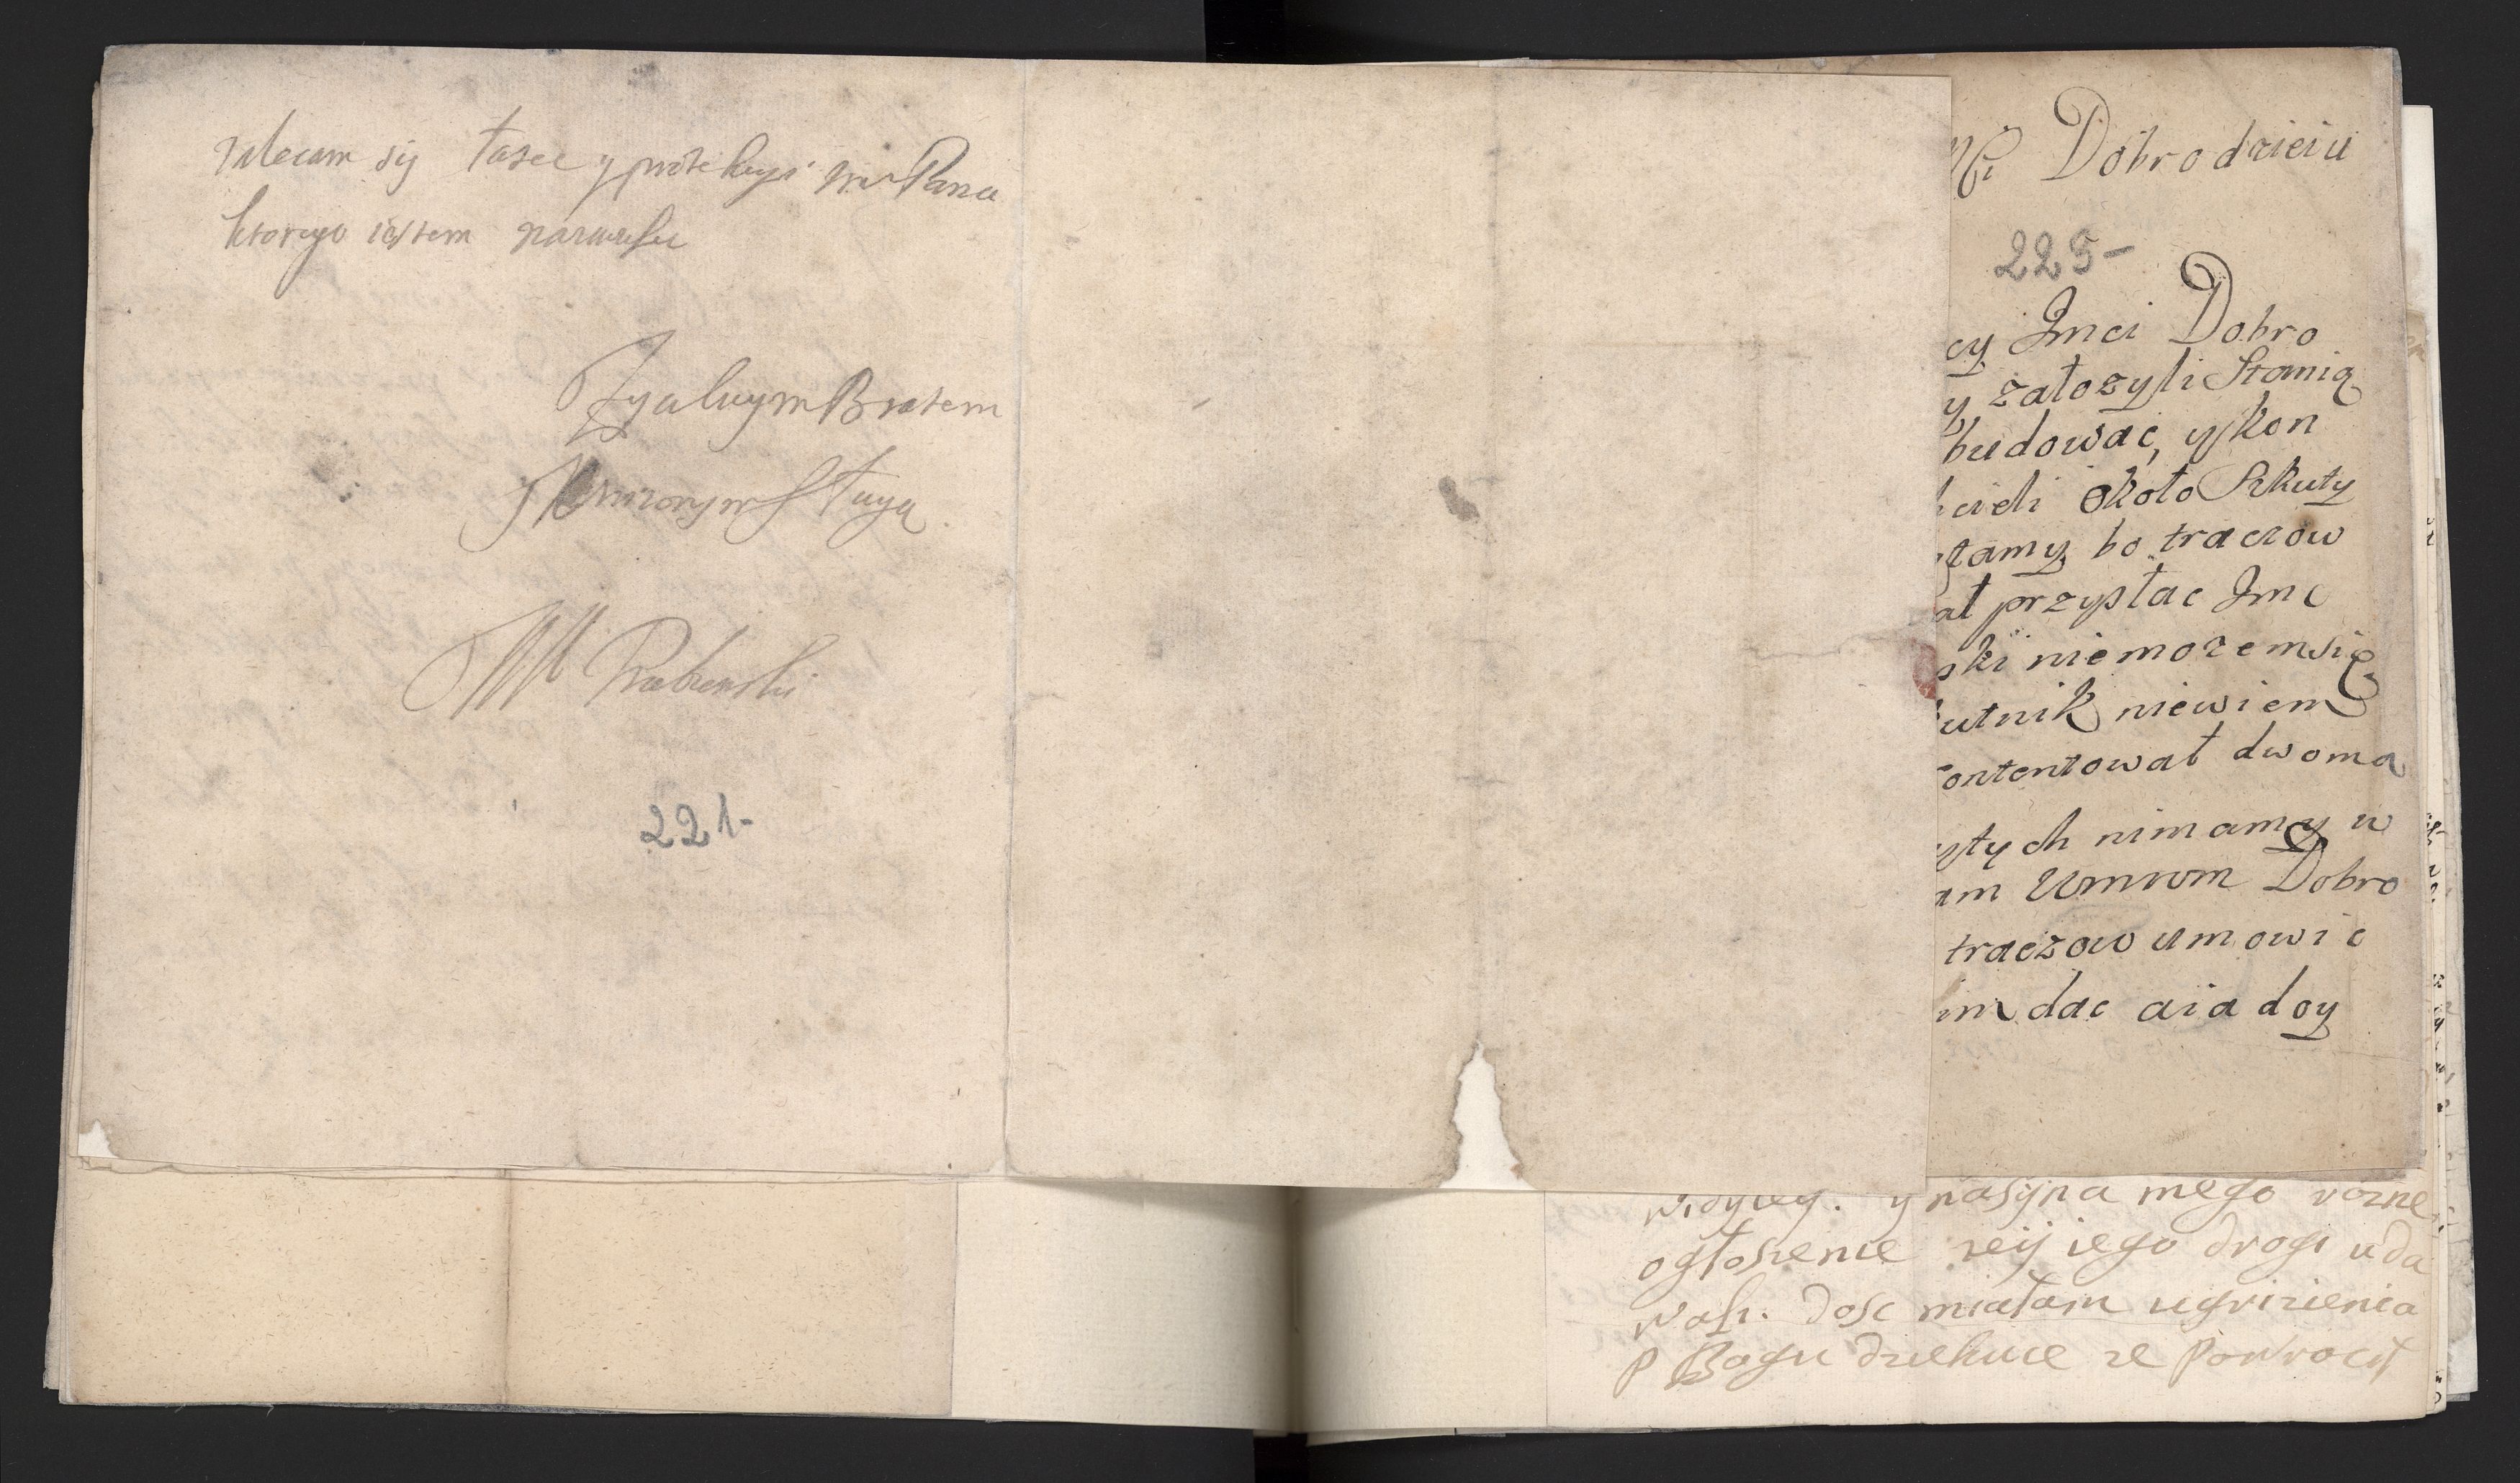 zalecam się łasce y protekcyi m Pana
ktorego iestem nazawsze
Zyaliwym Bratem
Unizonym Sługą
221-
Dobrodzieiu
225-
cy Imci Dobro
y załozyli Stanią
budowac, yskon
około Szkuty
tamy bo traczow
ał przysłac Imc
ski niemozemsię
utnik niewiem
ontentował dwoma
stych nimamy w
am Umwm Dobro
traczow umowic
im dac aia doy
ynasyna mego rozne
ogłoszenie zeij iego drogi uda
wali. dosc miałam ugrizienia
P Bogu dziekuie ze Powrocił